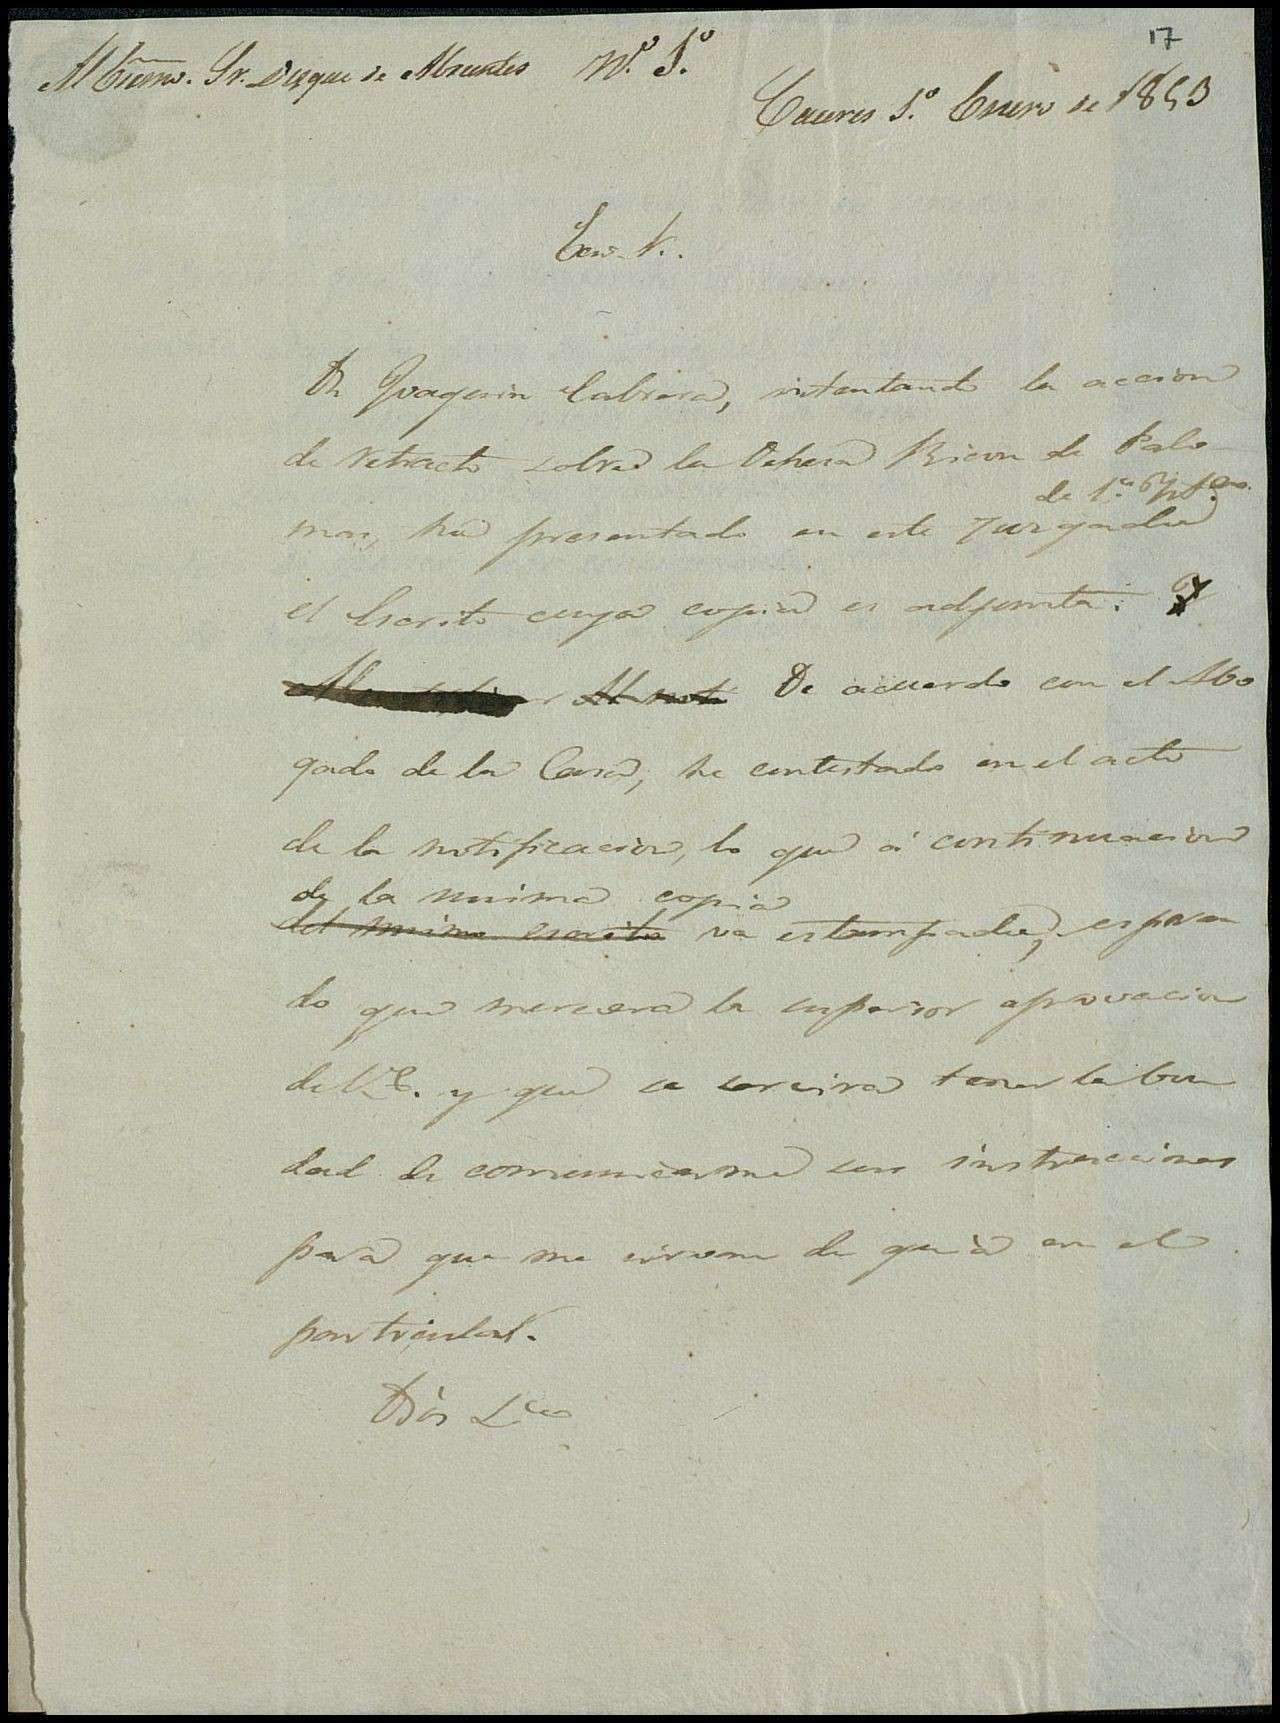 17
Al Excmo. Sr. Duque de Abrantes Nº 1º
Caceres 1º Enero de 1853
Exmo. Sr.
Dn Joaquin Cabrera, intentando la accion
de retracto sobre la Dehesa Rincon de Palo
de 1ª
mas, ha presentado en este Juzgado
el Escrito cuya copia es adjunta.
De acuerdo con el Abo
gado de la Casa, he contestado en el acto
de la notificacion, lo que á continuacion
de la misma copia
del mismo escrito va estampado, esperan
do que merecera la superior aprovacion
de V.E. y que se servira tener la bon
dad de comunicarme sus instrucciones
para que me sirvan de guia en el
particular.
Dios